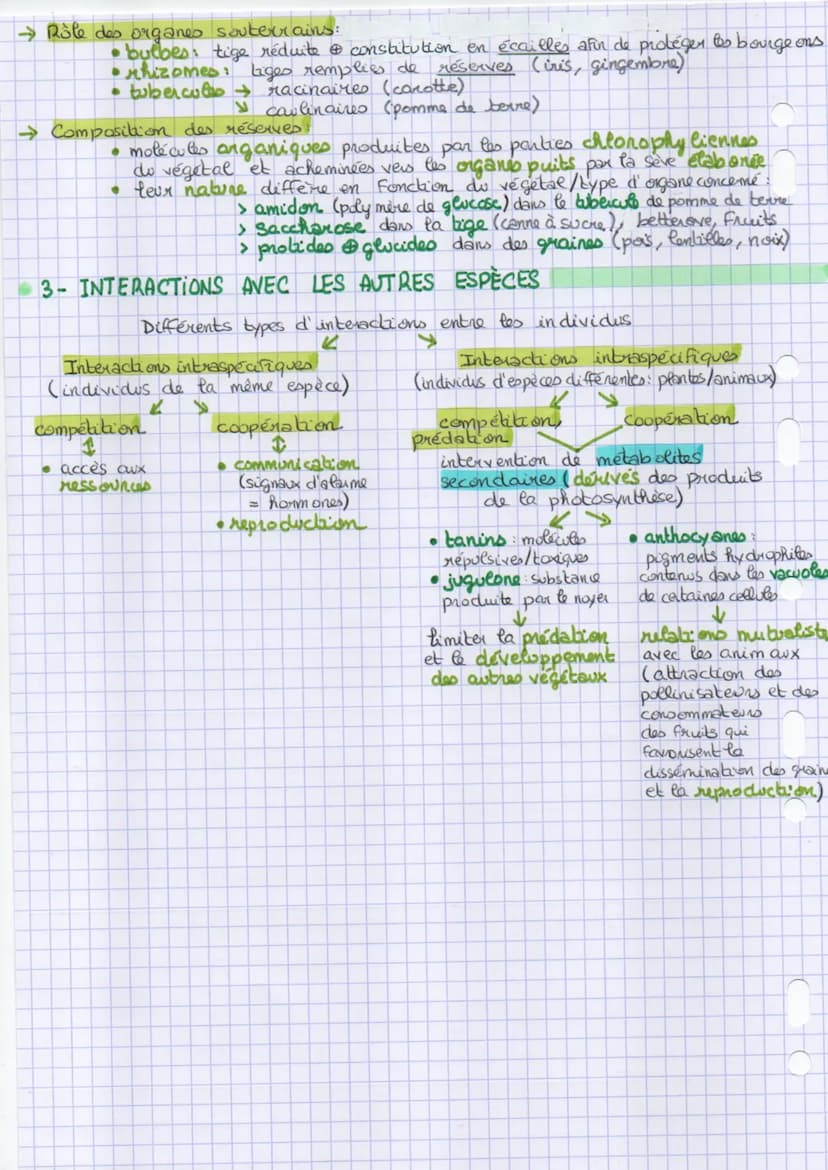 → Rôle des organes souterrains:
• bulbes: tige réduite ⊕ constitution en écailles afin de protéger les bourgeons
• rhizomes: tiges remplies de réserves (iris, gingembre)
• tubercules → racinaires (carotte)
↘ caulinaires (pomme de terre)
→ Composition des réserves:
• molécules organiques produites par les parties chlorophylliennes
du végétal et acheminées vers les organes puits par la sève élaborée
• leur nature diffère en fonction du végétal/type d'organe concerné:
> amidon (polymère de glucose) dans le tubercule de pomme de terre
> saccharose dans la tige (canne à sucre), betterave, fruits
> protides ⊕ glucides dans des graines (pois, lentilles, noix)
3- INTERACTIONS AVEC LES AUTRES ESPÈCES
Différents types d'interactions entre les individus
↙ ↘
Interactions intraspécifiques
(individus de la même espèce)
↙ ↘
compétition
↕
• accès aux
ressources
coopération
↕
• communication
(signaux d'alarme
= hormones)
• reproduction
Interactions intraspécifiques
(individus d'espèces différentes: plantes/animaux)
↙ ↘
compétition,
prédation
coopération
intervention de métabolites
secondaires (dérivés des produits
de la photosynthèse)
↙ ↘
• tanins: molécules
répulsives/toxiques
• juglone: substance
produite par le noyer
↓
limiter la prédation
et le développement
des autres végétaux
• anthocyanes:
pigments hydrophiles
contenus dans les vacuoles
de certaines cellules
↓
relations mutualist
avec les animaux
(attraction des
pollinisateurs et des
consommateurs
des fruits qui
favorisent la
dissémination des grain
et la reproduction)